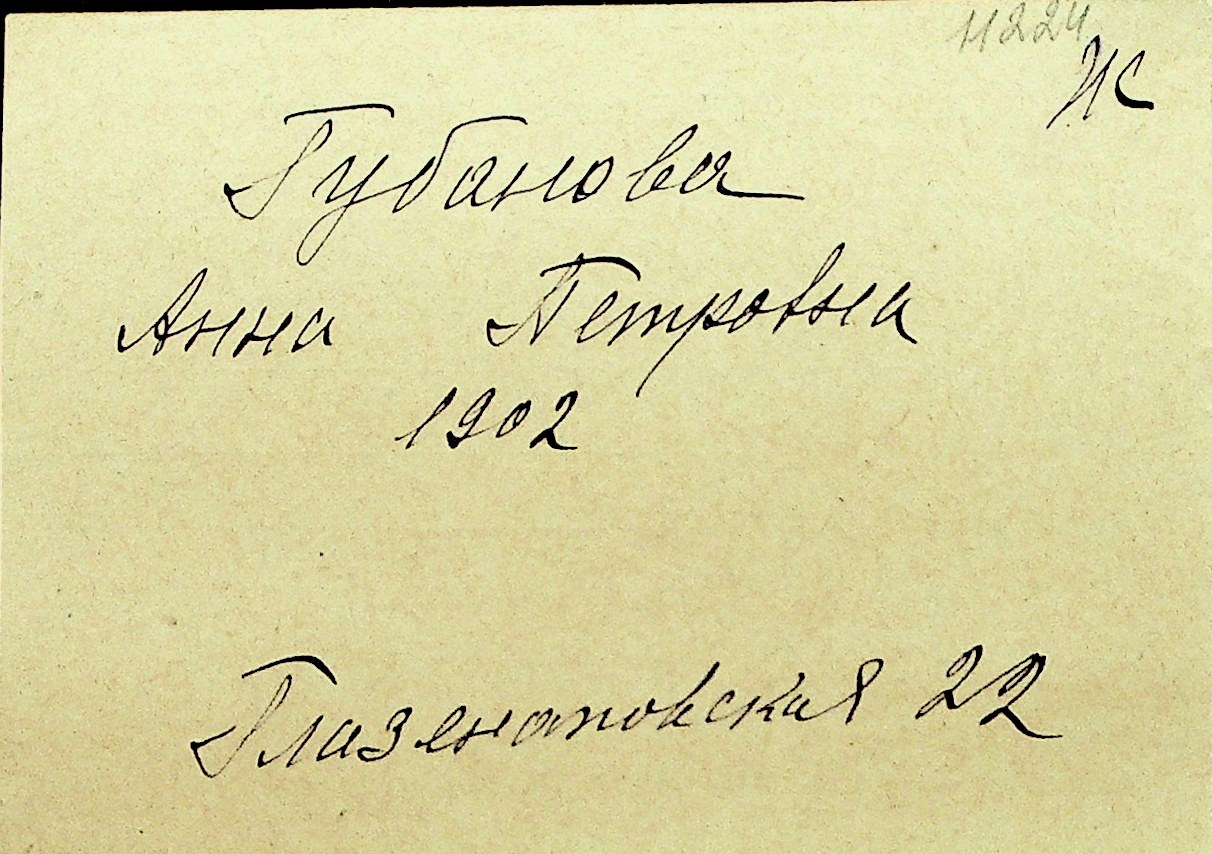 11224
Ж
Губанова
Анна Петровна
1902
Глазенаповская 22